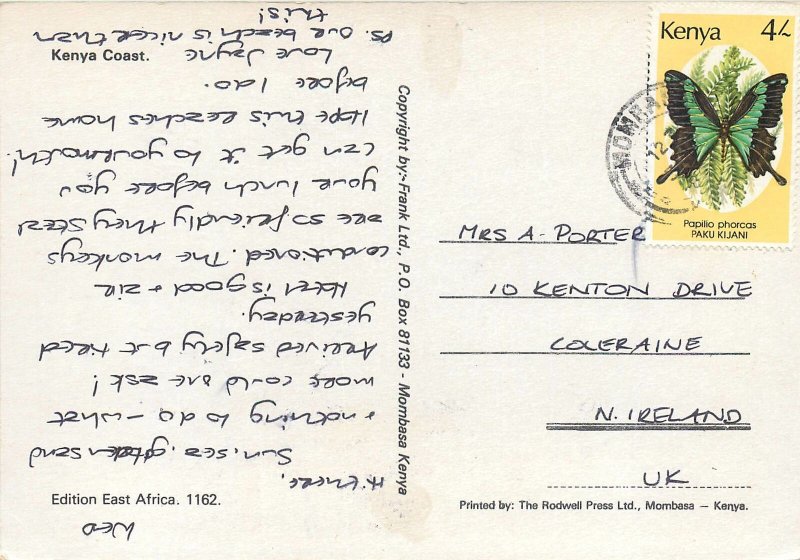 Kenya Coast.
WED
Hi there,
Sun, sea, golden sand
& nothing to do – what
more could one ask!
Arrived safely but tired
yesterday.
Hotel is good & air
conditioned. The monkeys
are so friendly they steal
your lunch before you
can get it to your mouth!
Hope this reaches home
before I do.
Love Jayne
PS. Our beach is nicer than
this!
Edition East Africa. 1162.
Copyright by:- Frank Ltd., P.O. Box 81133 - Mombasa Kenya
Kenya 4/-
Papilio phorcas
PAKU KIJANI
MOMBASA
12
MRS A. PORTER
10 KENTON DRIVE
COLERAINE
N. IRELAND
UK
Printed by: The Rodwell Press Ltd., Mombasa – Kenya.